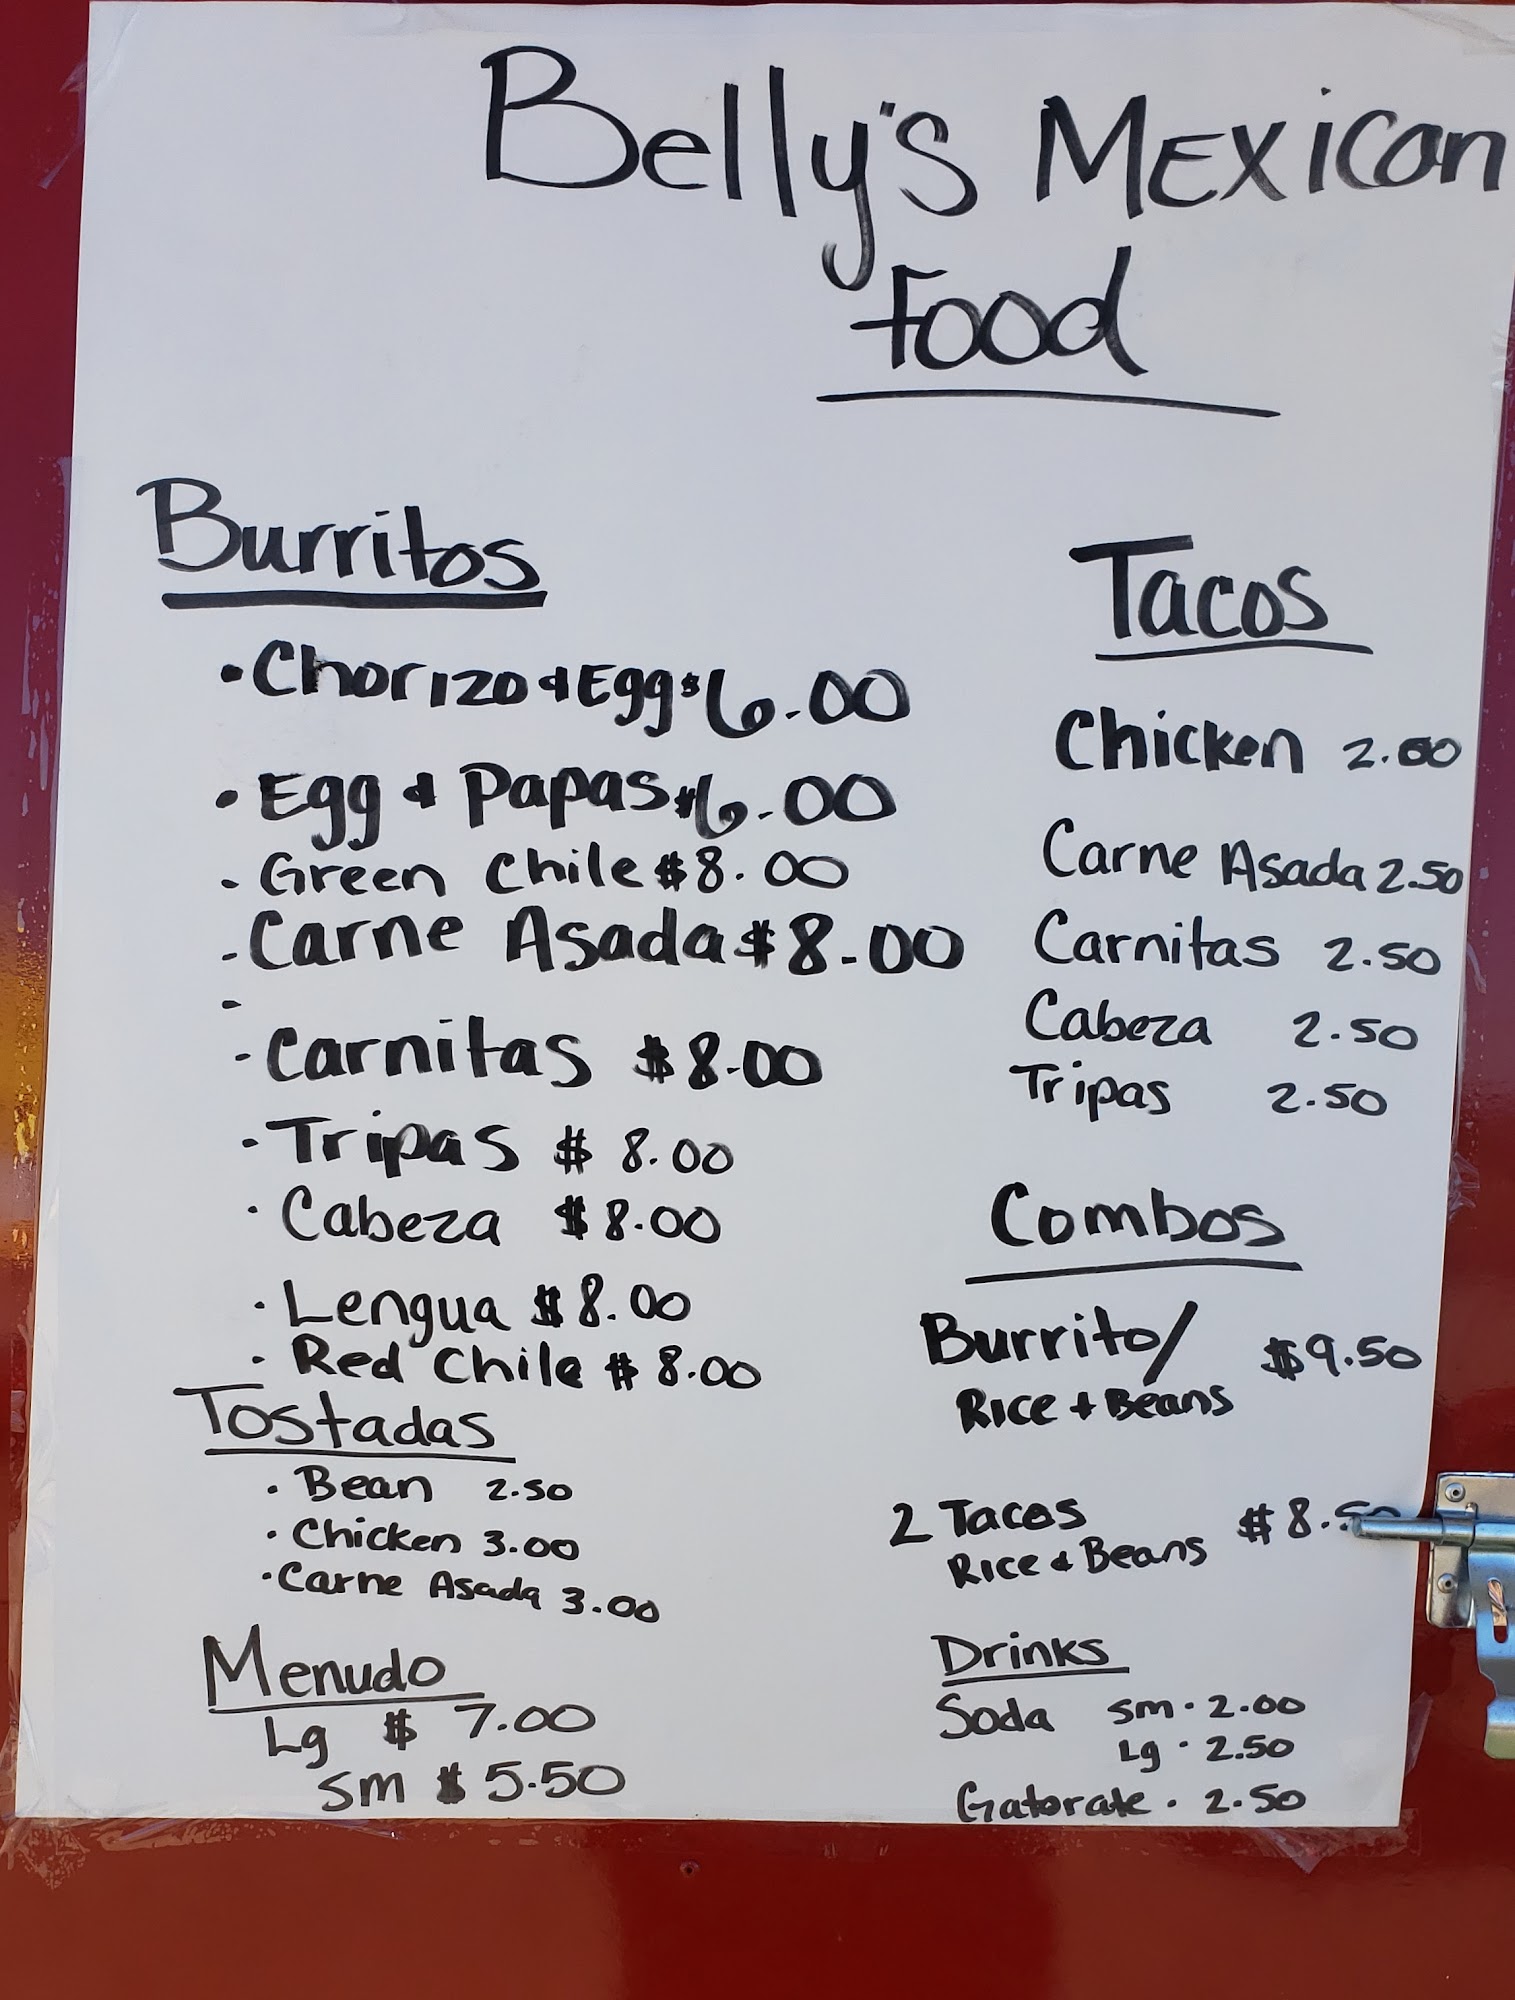 Belly's Mexican
Food
Burritos
• Chorizo & Egg $6.00
• Egg & Papas $6.00
- Green Chile $8.00
- Carne Asada $8.00
-
- Carnitas $8.00
• Tripas $8.00
• Cabeza $8.00
• Lengua $8.00
• Red Chile $8.00
Tostadas
• Bean 2.50
• Chicken 3.00
• Carne Asada 3.00
Menudo
Lg $ 7.00
Sm $ 5.50
Tacos
Chicken 2.00
Carne Asada 2.50
Carnitas 2.50
Cabeza 2.50
Tripas 2.50
Combos
Burrito/ $9.50
Rice & Beans
2 Tacos $8.50
Rice & Beans
Drinks
Soda Sm • 2.00
Lg • 2.50
Gatorate • 2.50